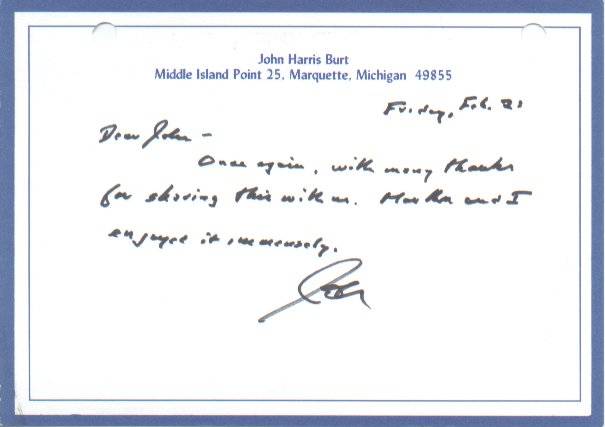 John Harris Burt
Middle Island Point 25, Marquette, Michigan 49855
Friday, Feb. 21
Dear John –
Once again, with many thanks
for sharing this with us. Martha and I
enjoyed it immensely.
John